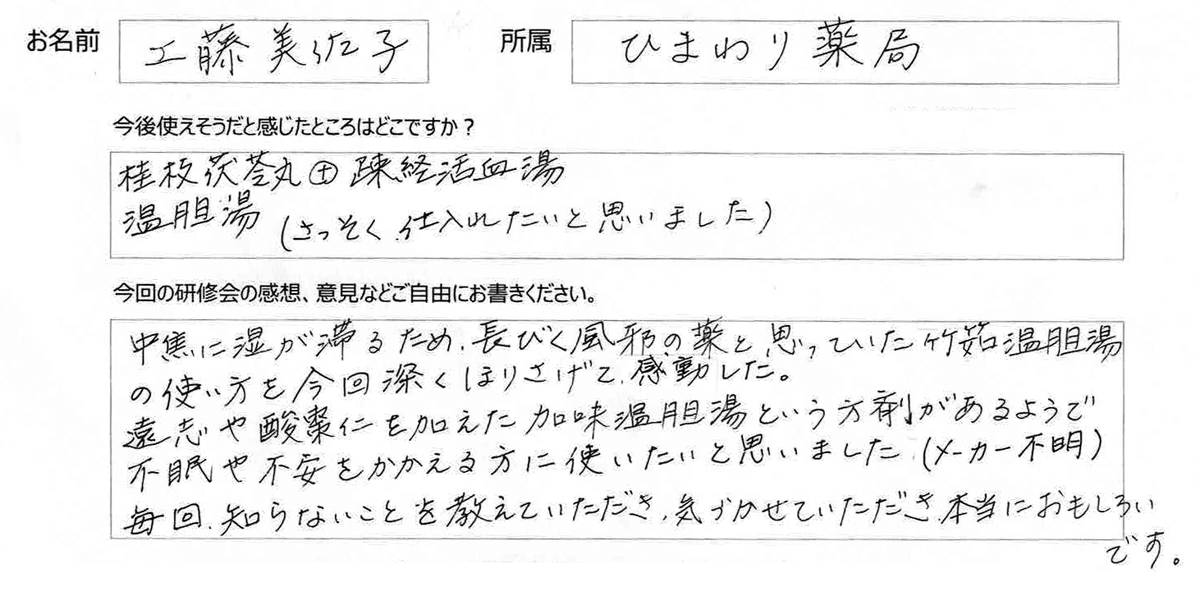 お名前 工藤美佐子 所属 ひまわり薬局
今後使えそうだと感じたところはどこですか？
桂枝茯苓丸⊕疎経活血湯
温胆湯 (さっそく、仕入れたいと思いました)
今回の研修会の感想、意見などご自由にお書きください。
中焦に湿が滞るため、長びく風邪の薬と思っていた竹筎温胆湯
の使い方を今回深くほりさげて、感動した。
遠志や酸棗仁を加えた加味温胆湯という方剤があるようで
不眠や不安をかかえる方に使いたいと思いました。(メーカー不明)
毎回、知らないことを教えていただき、気づかせていただき、本当におもしろい
です。